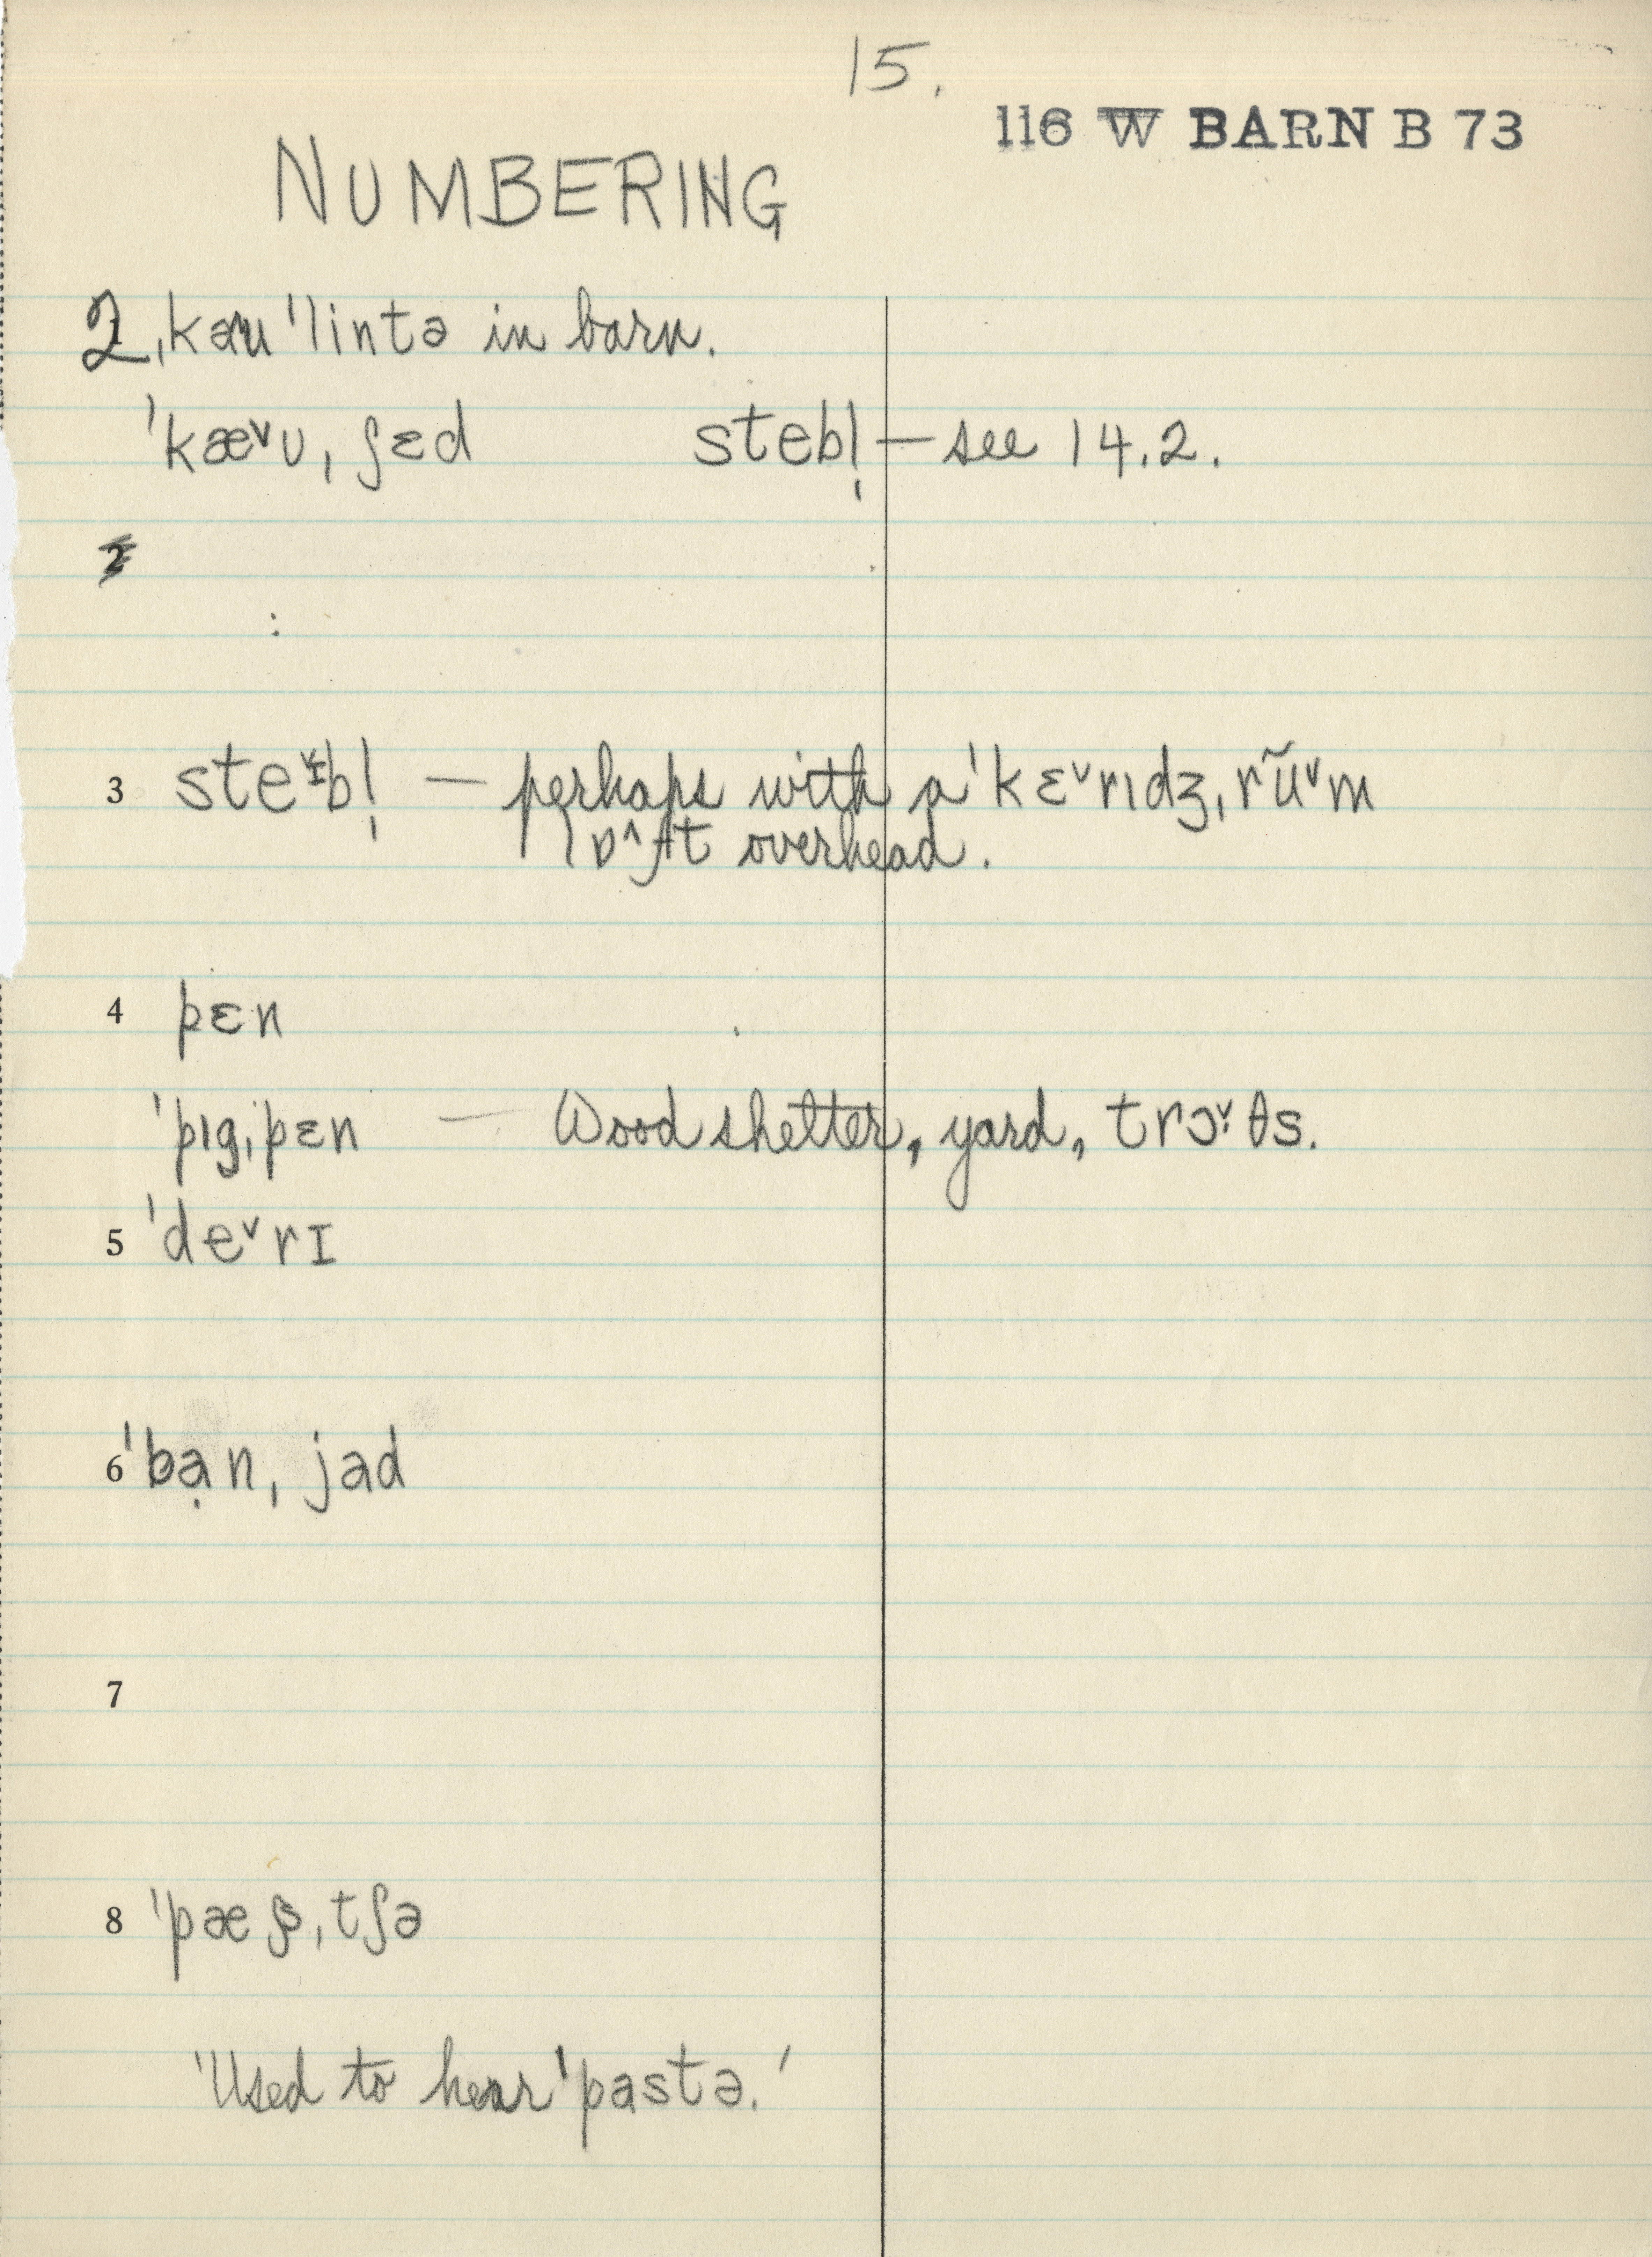 15.
116 W BARN B 73
NUMBERING
2 ˌkau ˈlintə in barn.
ˈkæ˅ʊˌʃɛd stebl̩ — see 14.2.
2
3 ste˅bl̩ — perhaps with a ˈkɛ˅rɪdʒˌrũ˅m
lɒ^ft overhead.
4 pɛn
ˈpɪgˌpɛn — Wood shelter, yard, trɔ˅θs.
5 ˈde˅rɪ
6 ˈbạnˌjad
7
8 ˈpæsˌtʃə
'Used to hear ˈpastə.'